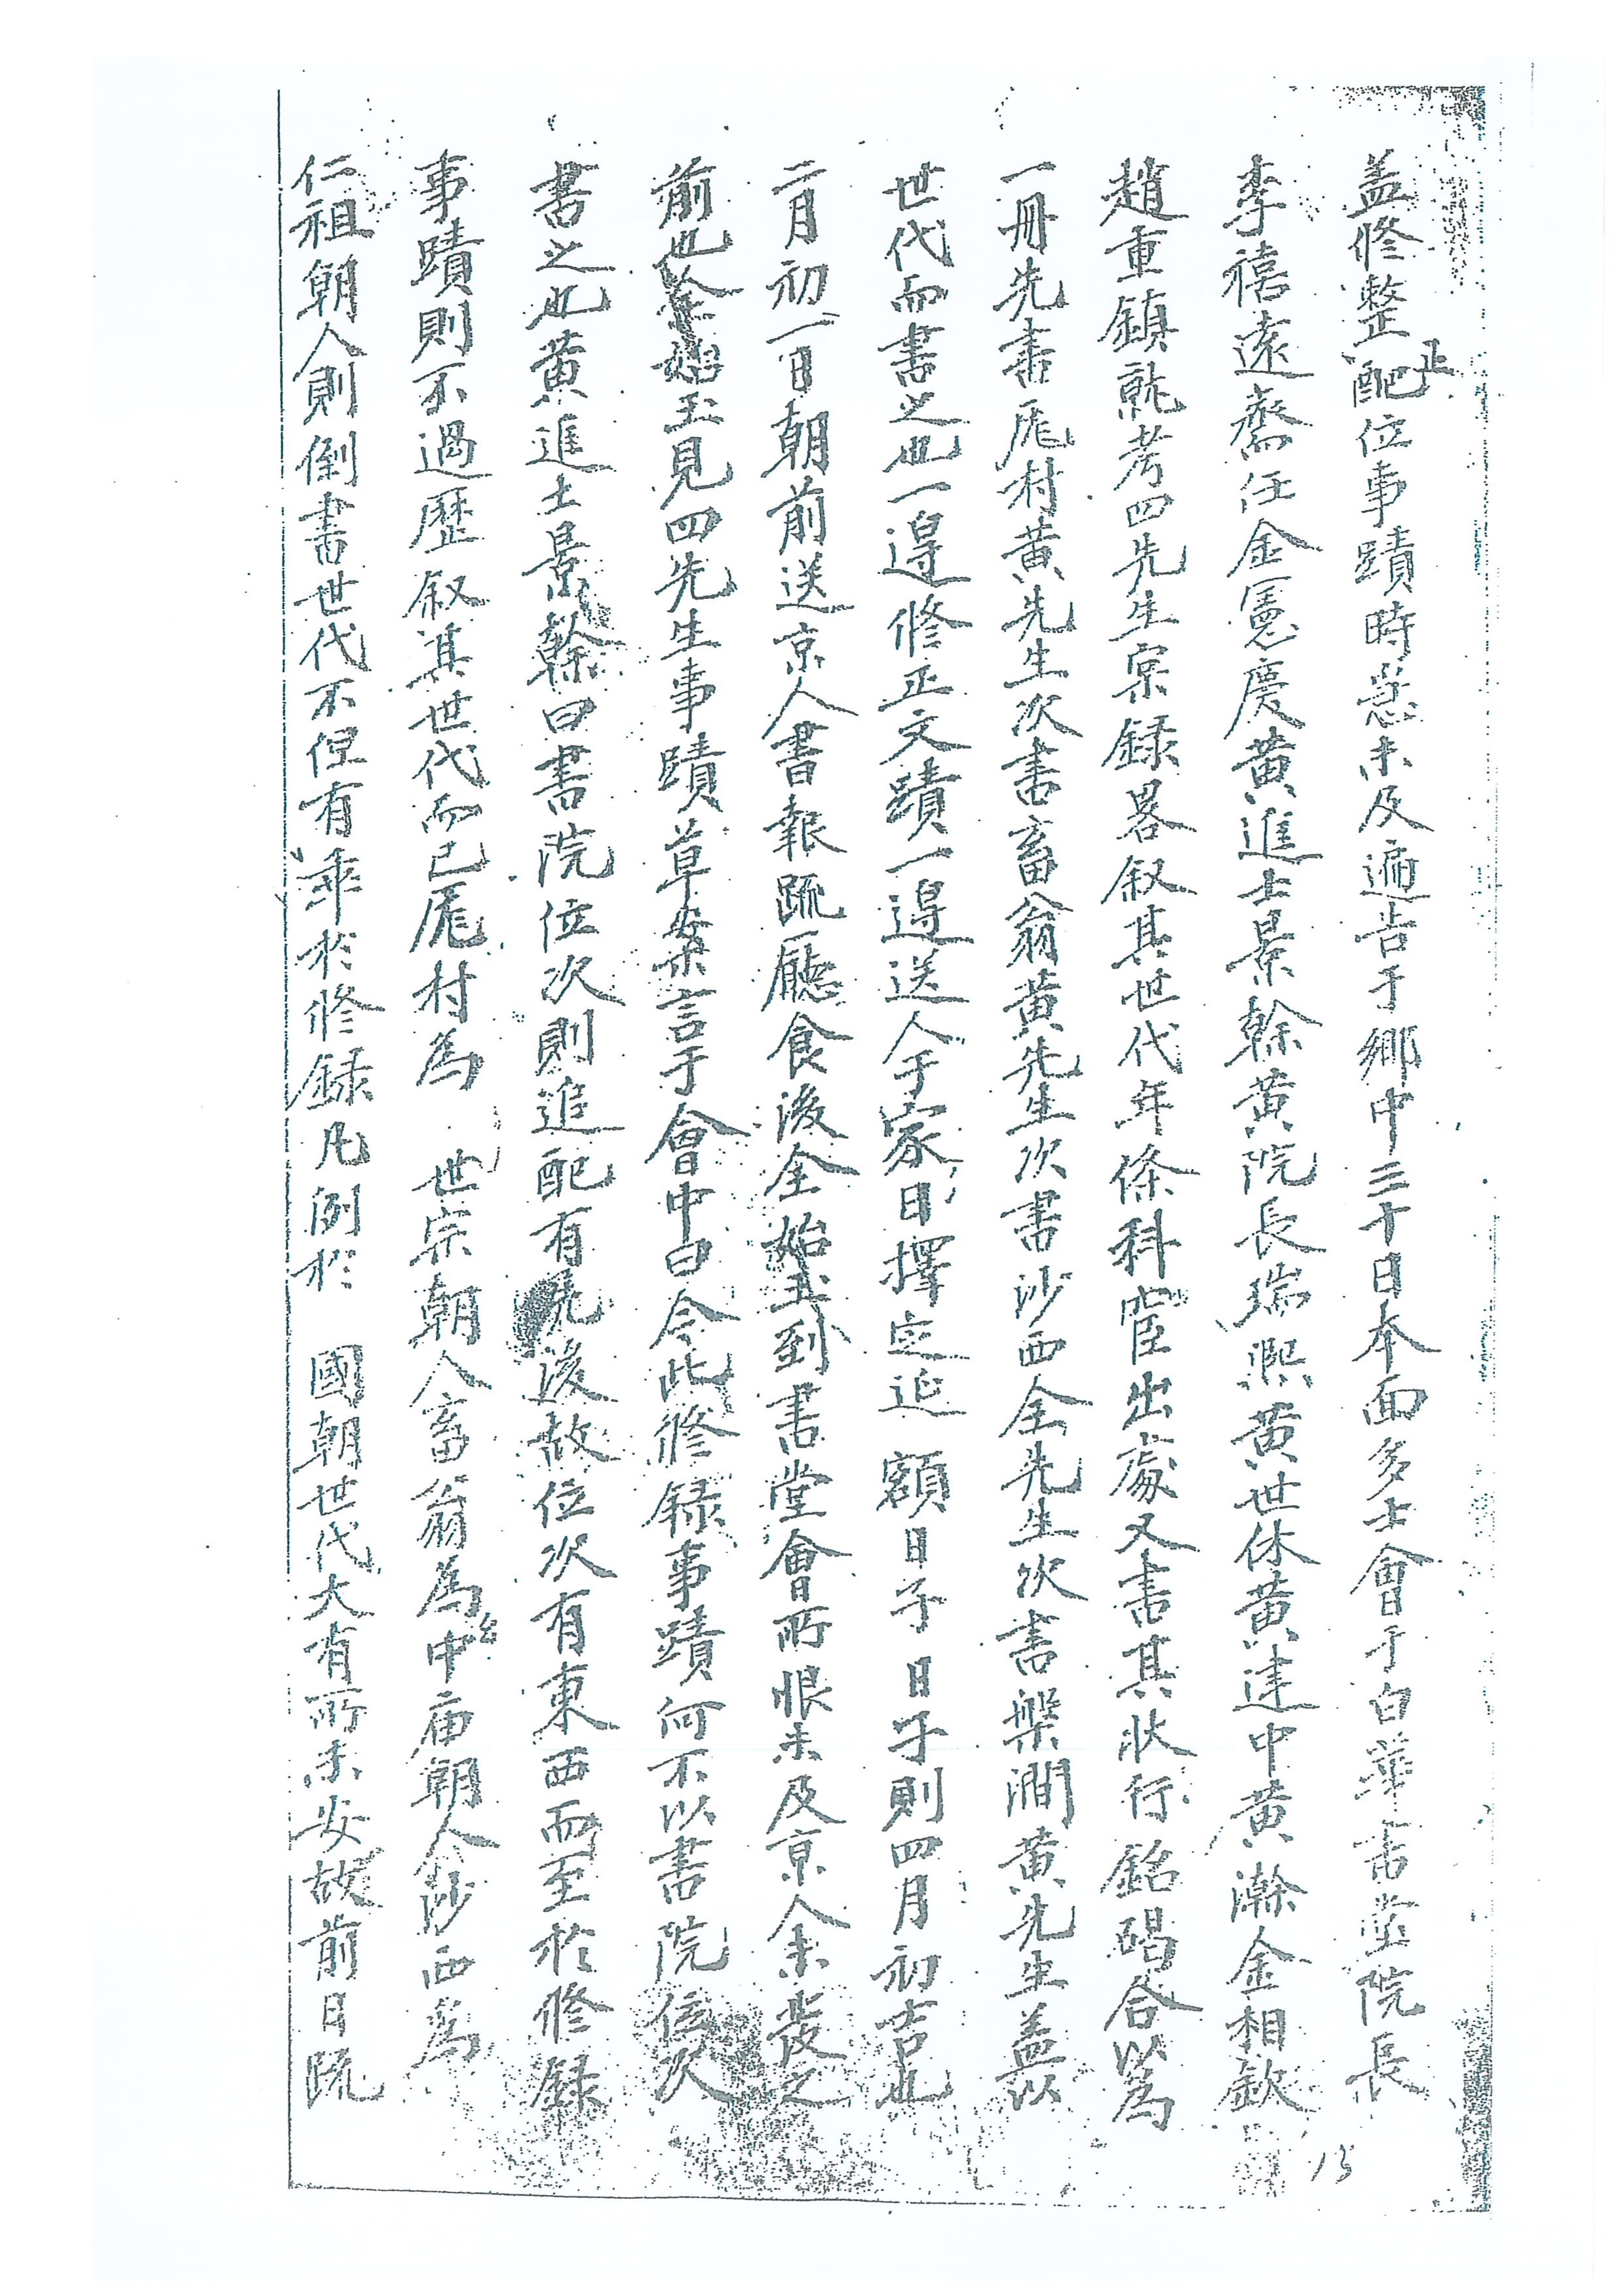 盖修整正配位事蹟時急未及遍告于鄉中三十日本面多士會于白華書堂院長
李禧遠齋任金憲慶黃進士景榦黃院長瑞熙黃世休黃建中黃瀚金相欽
趙重鎮就考四先生宲錄畧叙其世代年條科宦出處又書其狀行銘碣合以爲
一冊先書厖村黃先生次書畜翁黃先生次書沙西全先生次書槃澗黃先生盖以
世代而書之也一邊修正文蹟一邊送人于家日擇定延額日子日子則四月初吉也
二月初一日朝前送京人書報疏廳食後全始玉到書堂會所恨未及京人未發之
前也全始玉見四先生事蹟草案言于會中曰今此修錄事蹟何不以書院位次
書之也黃進士景榦曰書院位次則追配有先後故位次有東西而至於修錄
事蹟則不過歷叙其世代而已厖村爲 世宗朝人畜翁爲中庙朝人沙西爲
仁祖朝人則倒書世代不但有乖於修錄凡例於 國朝世代大有所未安故前日疏
15